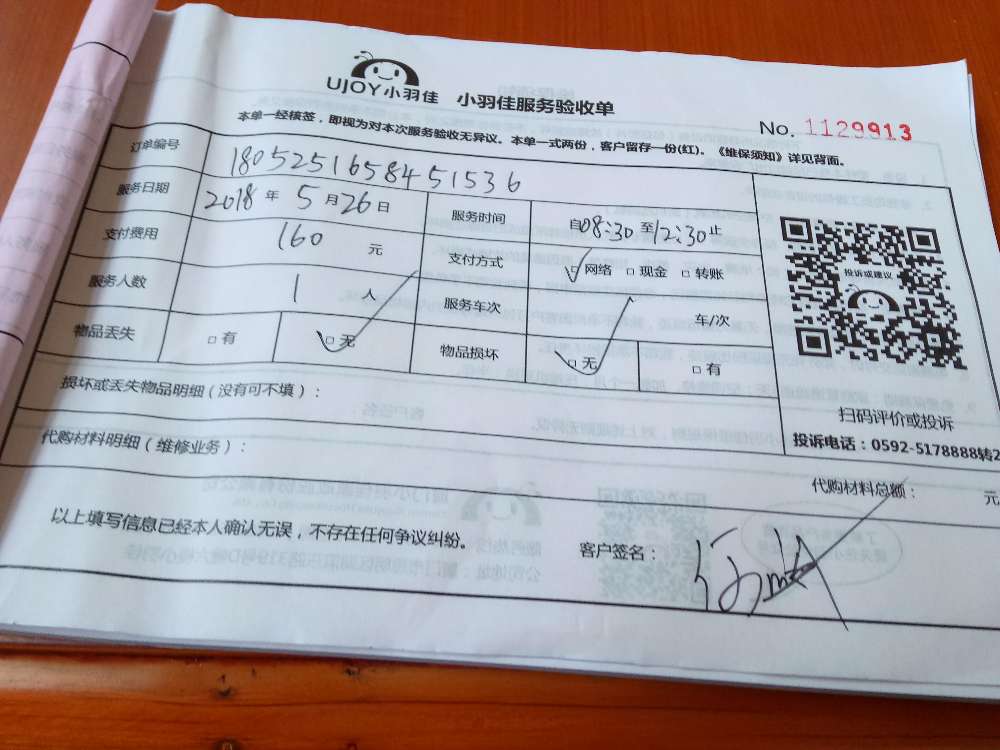 UJOY小羽佳 小羽佳服务验收单
No. 1129913
本单一经核签，即视为对本次服务验收无异议。本单一式两份，客户留存一份(红)。《维保须知》详见背面。
订单编号 1805251658451536
服务日期 2018 年 5 月 26 日 服务时间 自08:30 至12:30止
支付费用 160 元 支付方式 ☑网络 □现金 □转账
服务人数 1 人 服务车次 车/次
物品丢失 □ 有 ☑ 无 物品损坏 ☑ 无 □ 有
投诉或建议
扫码评价或投诉
投诉电话：0592-5178888转2
损坏或丢失物品明细（没有可不填）：
代购材料明细（维修业务）：
代购材料总额： 元
以上填写信息已经本人确认无误，不存在任何争议纠纷。 客户签名：